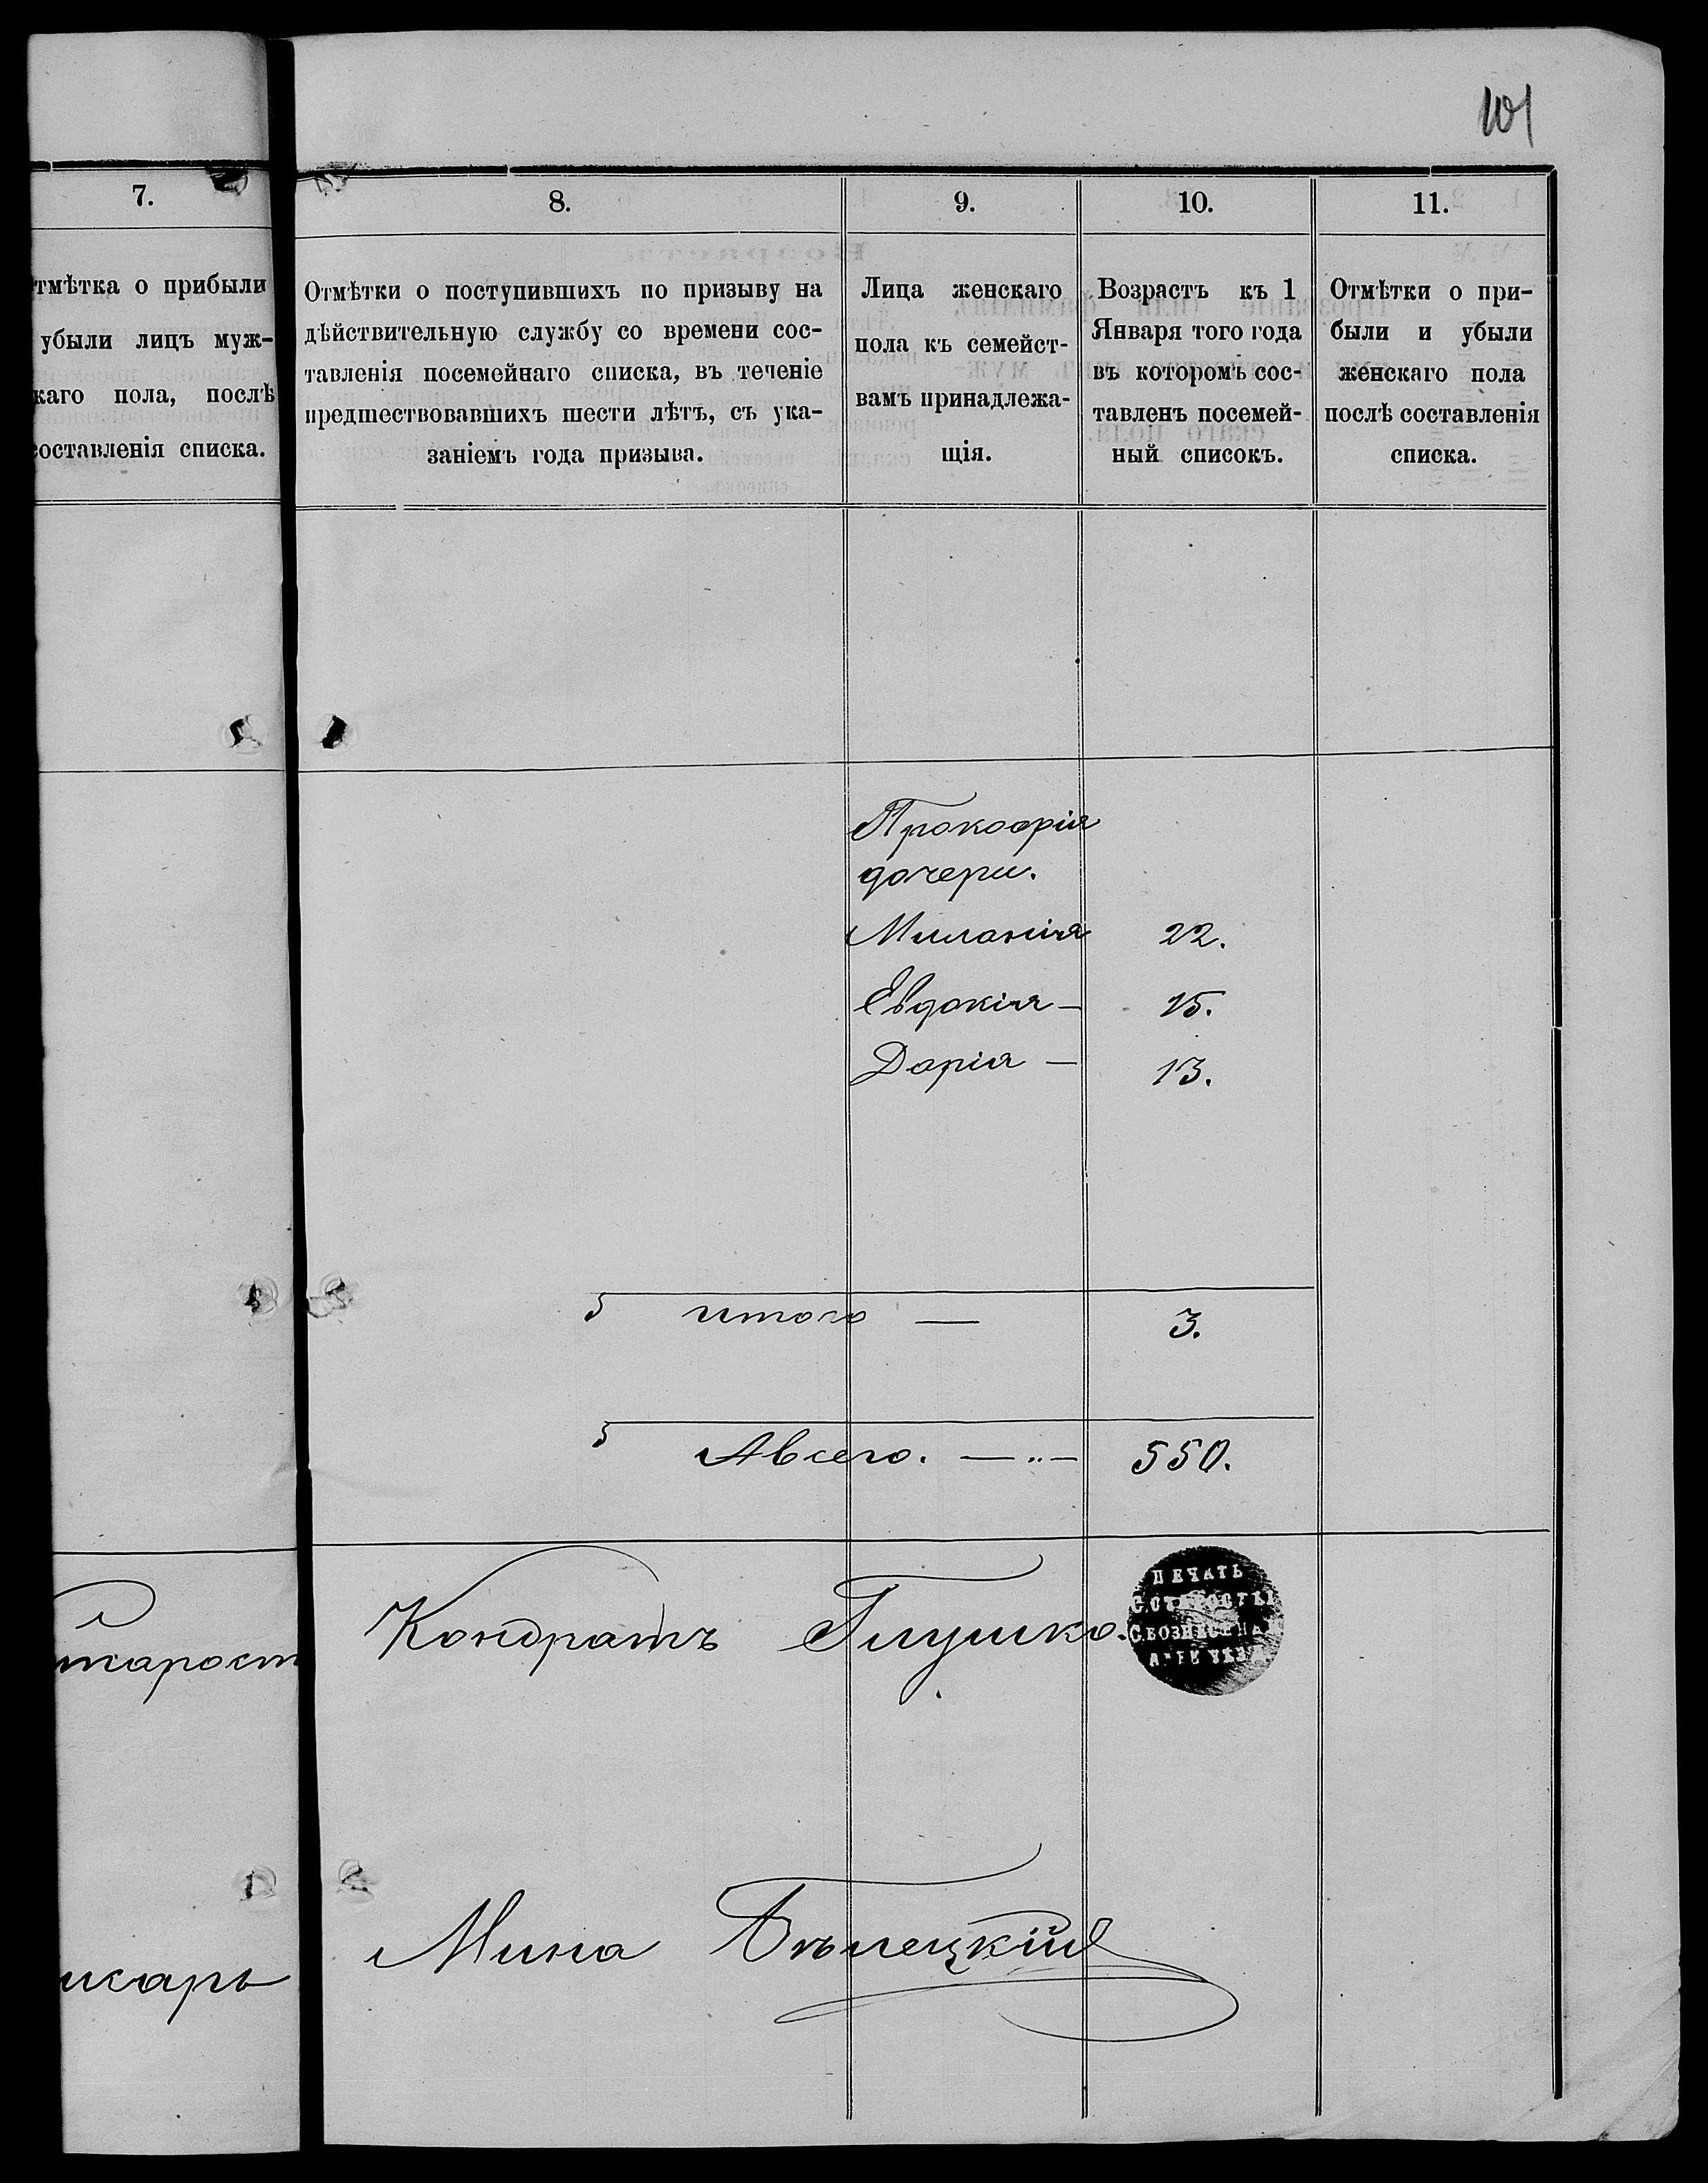 101
7.
тмѣтка о прибыли
убыли лицъ муж-
каго пола, послѣ
составленія списка.
8.
Отмѣтки о поступившихъ по призыву на
дѣйствительную службу со времени сос-
тавленія посемейнаго списка, въ теченіе
предшествовавшихъ шести лѣтъ, съ ука-
заніемъ года призыва.
9.
Лица женскаго
пола къ семейст-
вамъ принадлежа-
щія.
10.
Возрастъ къ 1
Января того года
въ которомъ сос-
тавленъ посемей-
ный списокъ.
11.
Отмѣтки о при-
были и убыли
женскаго пола
послѣ составленія
списка.
Прокофія
дочери.
Миланія 22.
Евдокія — 15.
Дарія — 13.
итого — 3.
Авсего. — 550.
тарост Кондратъ Глушко.
ПЕЧАТЬ
С. СТАРОСТЫ
писарь Мина Бѣлецкій